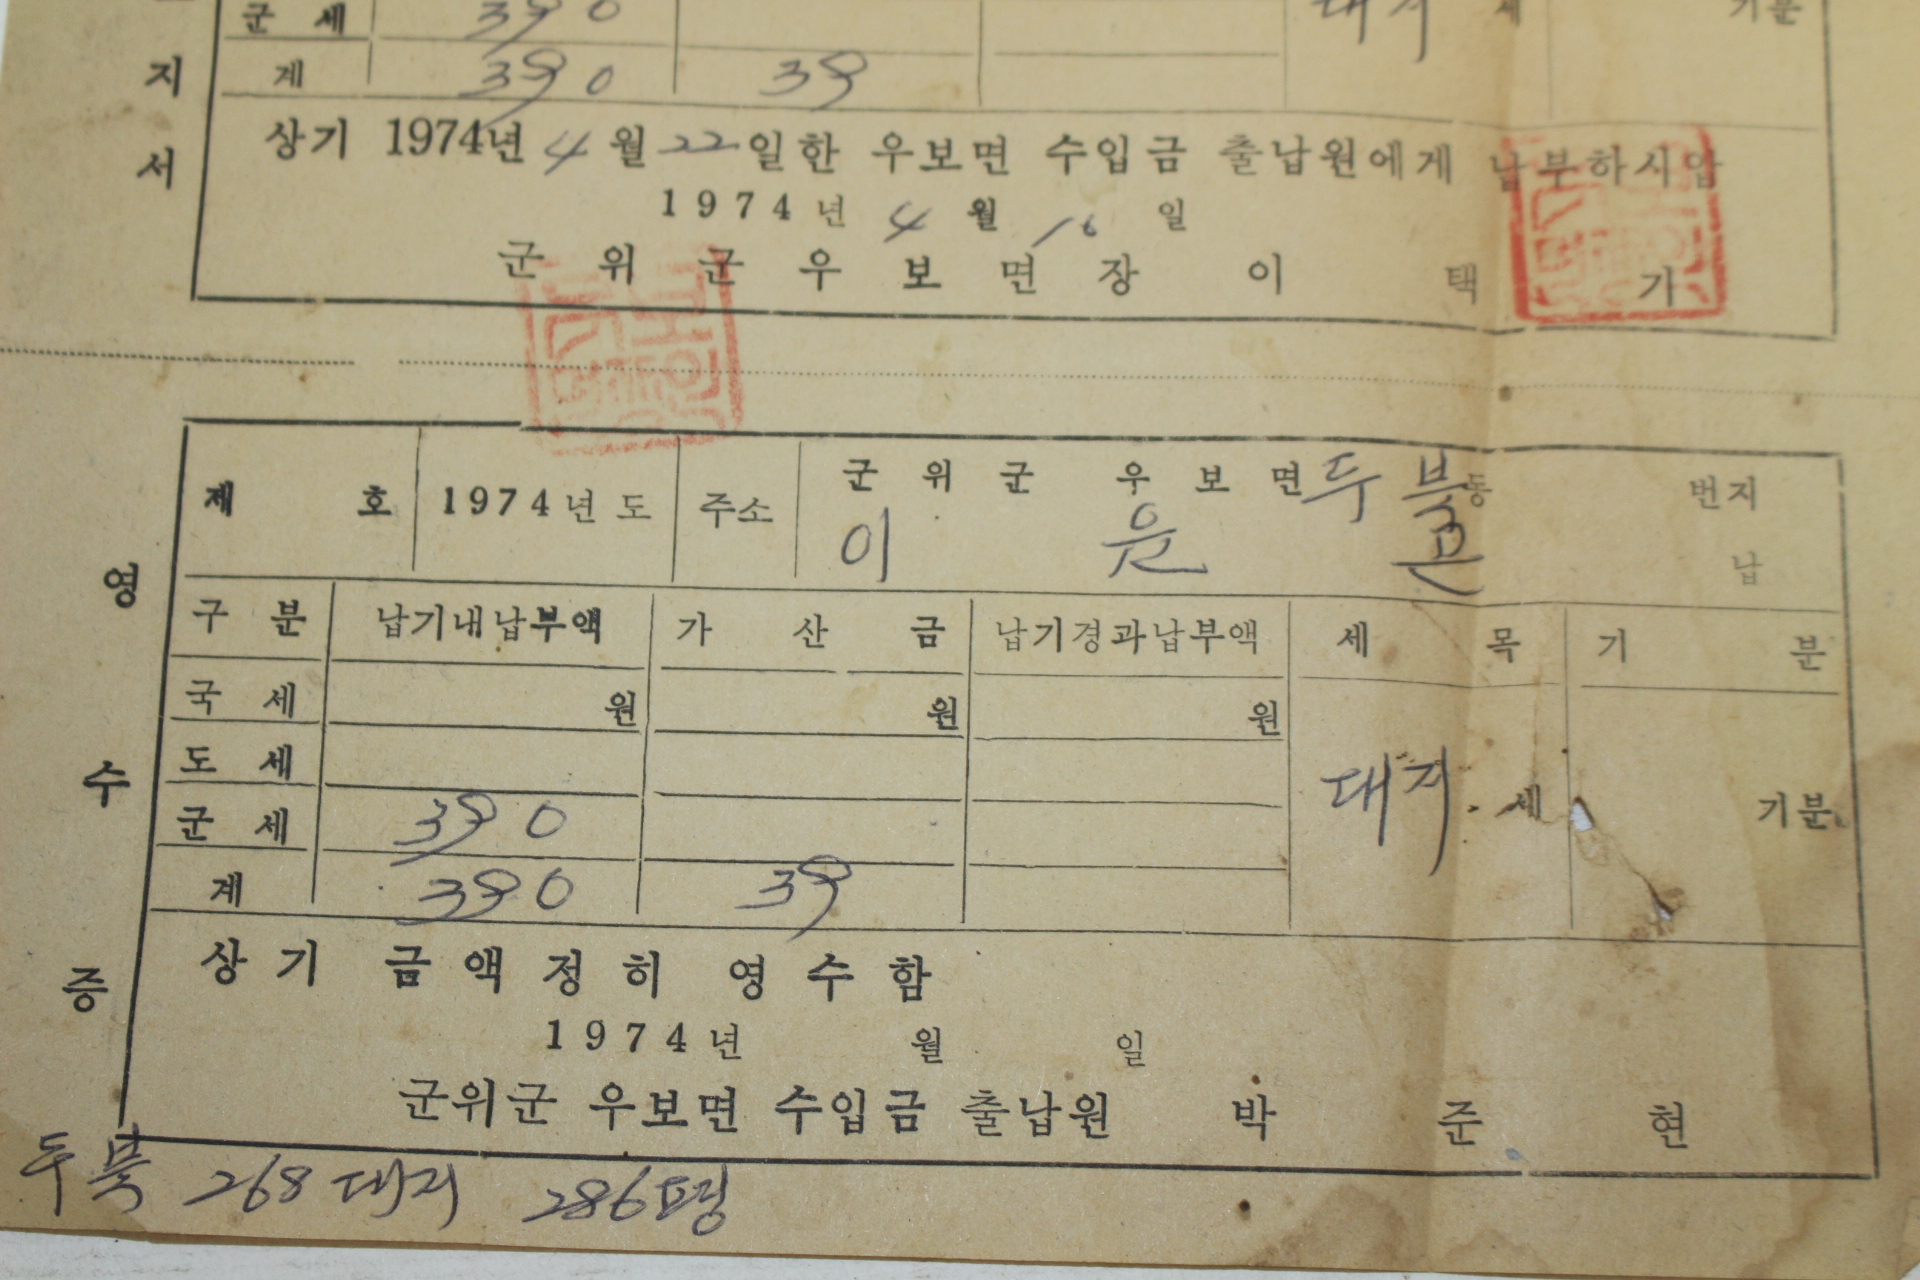 군 세 390 대지 세 기분
계 390 39
지
서
상기 1974년 4월 22일한 우보면 수입금 출납원에게 납부하시압
1974년 4월 16일
군 위 군 우 보 면 장 이 택 기
영
수
증
제 호 1974년도 주소 군 위 군 우 보 면 두북동 번지
이 윤 납
구 분 납기내납부액 가 산 금 납기경과납부액 세 목 기 분
국 세 원 원 원
도 세
군 세 390 대지 세 기분
계 390 39
상 기 금 액 정 히 영 수 함
1974년 월 일
군위군 우보면 수입금 출납원 박 준 현
두북 268 대지 286평